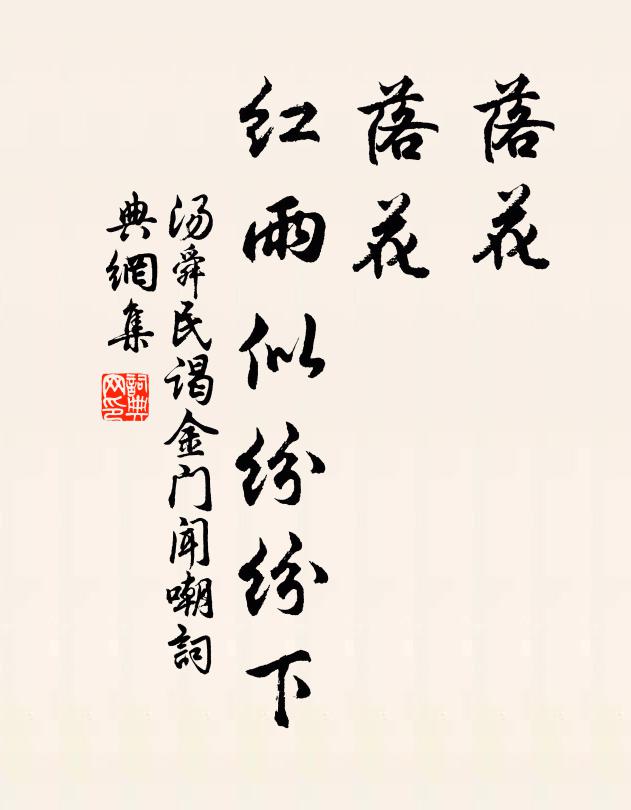 落花
落花
红雨似纷纷下
汤舜民谒金门闻嘲詞
典網集
詞典
网印